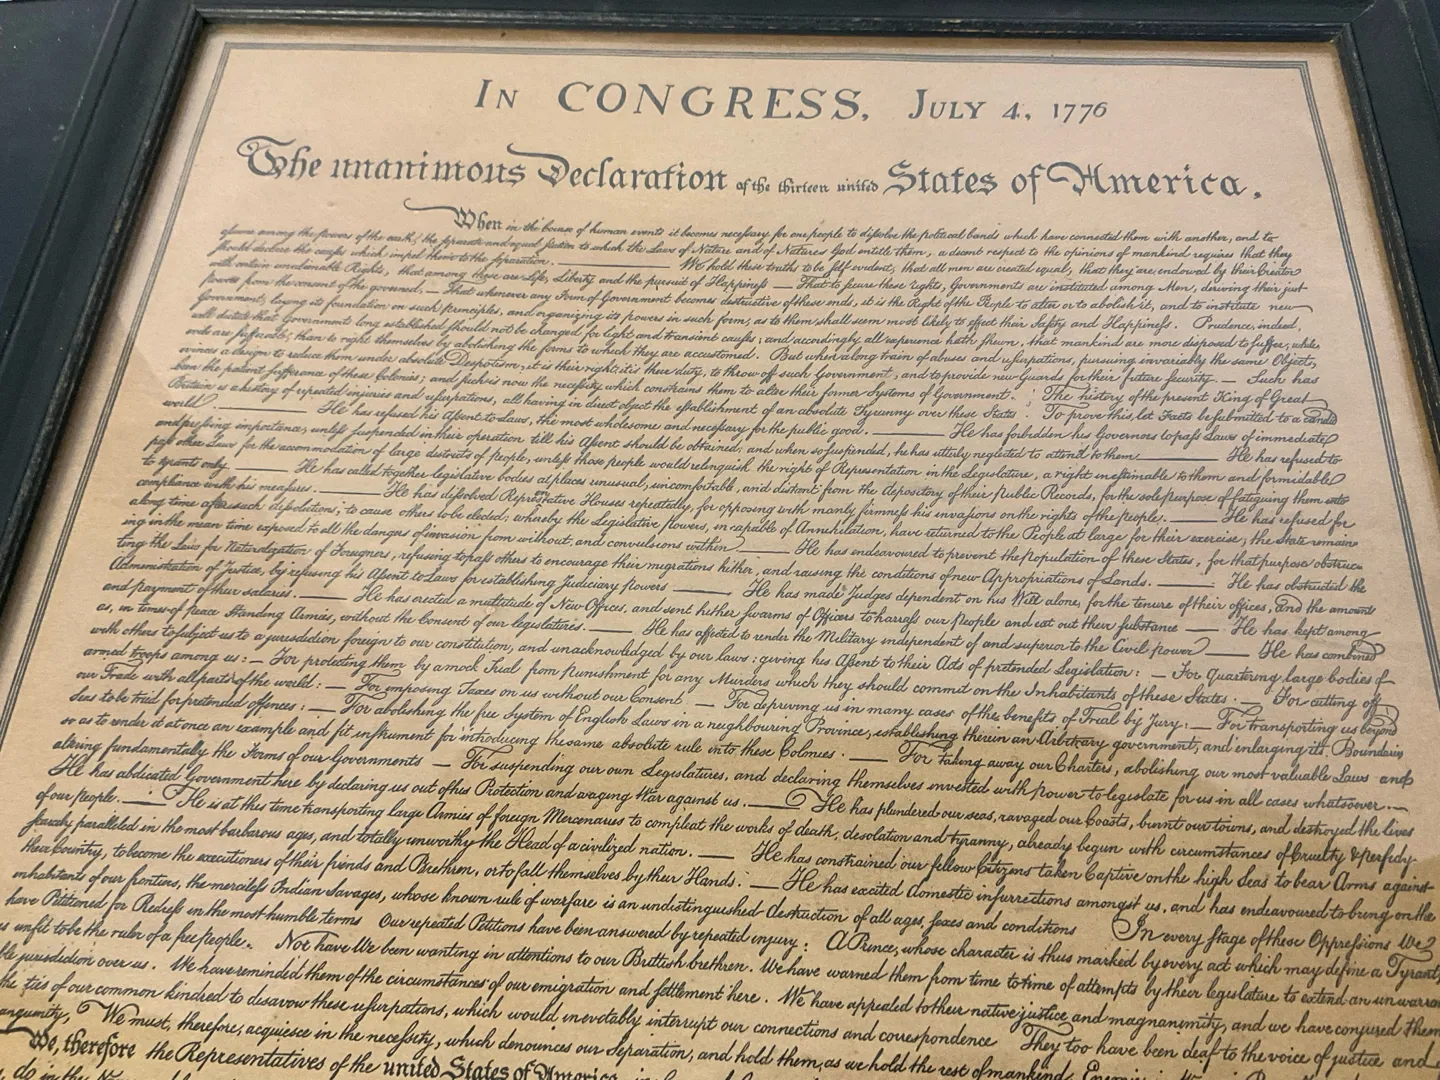 In CONGRESS, July 4, 1776
The unanimous Declaration of the thirteen united States of America.
When in the Course of human events it becomes necessary for one people to dissolve the political bands which have connected them with another, and to
assume among the powers of the earth, the separate and equal station to which the Laws of Nature and of Nature's God entitle them, a decent respect to the opinions of mankind requires that they
should declare the causes which impel them to the separation. — We hold these truths to be self evident, that all men are created equal, that they are endowed by their Creator
with certain unalienable Rights, that among these are Life, Liberty and the pursuit of Happiness — That to secure these rights, Governments are instituted among Men, deriving their just
powers from the consent of the governed; — That whenever any Form of Government becomes destructive of these ends, it is the Right of the People to alter or to abolish it, and to institute new
Government, laying its foundation on such principles, and organizing its powers in such form, as to them shall seem most likely to effect their Safety and Happiness. Prudence, indeed,
will dictate that Governments long established should not be changed for light and transient causes; and accordingly all experience hath shewn, that mankind are more disposed to suffer, while
evils are sufferable, than to right themselves by abolishing the forms to which they are accustomed. But when a long train of abuses and usurpations, pursuing invariably the same Object,
evinces a design to reduce them under absolute Despotism, it is their right, it is their duty, to throw off such Government, and to provide new Guards for their future security. — Such has
been the patient sufferance of these Colonies; and such is now the necessity which constrains them to alter their former Systems of Government. The history of the present King of Great
Britain is a history of repeated injuries and usurpations, all having in direct object the establishment of an absolute Tyranny over these States. To prove this, let Facts be submitted to a candid
world — He has refused his Assent to Laws, the most wholesome and necessary for the public good. — He has forbidden his Governors to pass Laws of immediate
and pressing importance, unless suspended in their operation till his Assent should be obtained; and when so suspended, he has utterly neglected to attend to them — He has refused to
pass other Laws for the accommodation of large districts of people, unless those people would relinquish the right of Representation in the Legislature, a right inestimable to them and formidable
to tyrants only — He has called together legislative bodies at places unusual, uncomfortable, and distant from the depository of their Public Records, for the sole purpose of fatiguing them into
compliance with his measures. — He has dissolved Representative Houses repeatedly, for opposing with manly firmness his invasions on the rights of the people. — He has refused for
a long time after such dissolutions, to cause others to be elected; whereby the Legislative powers, in capable of Annihilation, have returned to the People at large for their exercise; the State remain
ing in the mean time exposed to all the dangers of invasion from without, and convulsions within — He has endeavoured to prevent the population of these States, for that purpose obstruc
ting the Laws for Naturalization of Foreigners, refusing to pass others to encourage their migrations hither, and raising the conditions of new Appropriations of Lands. — He has obstructed the
Administration of Justice, by refusing his Assent to Laws for establishing Judiciary powers — He has made Judges dependent on his Will alone, for the tenure of their offices, and the amount
and payment of their salaries. — He has erected a multitude of New Offices, and sent hither swarms of Officers to harass our People and eat out their substance — He has kept among
us, in times of peace Standing Armies, without the Consent of our legislatures. — He has affected to render the Military independent of and superior to the Civil power — He has combined
with others to subject us to a jurisdiction foreign to our constitution, and unacknowledged by our laws: giving his Assent to their Acts of pretended Legislation: — For Quartering large bodies of
armed troops among us: — For protecting them by a mock Trial from Punishment for any Murders which they should commit on the Inhabitants of these States: — For cutting off
our Trade with all parts of the world: — For imposing Taxes on us without our Consent — For depriving us in many cases of the benefits of Trial by Jury: — For transporting us beyond
Seas to be tried for pretended offences: — For abolishing the free System of English Laws in a neighbouring Province, establishing therein an Arbitrary government, and enlarging its Boundaries
so as to render it at once an example and fit instrument for introducing the same absolute rule into these Colonies. — For taking away our Charters, abolishing our most valuable Laws and
altering fundamentally the Forms of our Governments — For suspending our own Legislatures, and declaring themselves invested with power to legislate for us in all cases whatsoever. —
He has abdicated Government here by declaring us out of his Protection and waging War against us. — He has plundered our seas, ravaged our Coasts, burnt our towns, and destroyed the lives
of our people. — He is at this time transporting large Armies of foreign Mercenaries to compleat the works of death, desolation and tyranny, already begun with circumstances of Cruelty & perfidy
scarcely paralleled in the most barbarous ages, and totally unworthy the Head of a civilized nation. — He has constrained our fellow Citizens taken Captive on the high Seas to bear Arms against
their Country, to become the executioners of their friends and Brethren, or to fall themselves by their Hands. — He has excited domestic insurrections amongst us, and has endeavoured to bring on the
inhabitants of our frontiers, the merciless Indian Savages, whose known rule of warfare is an undistinguished destruction of all ages, sexes and conditions In every stage of these Oppressions We
have Petitioned for Redress in the most humble terms Our repeated Petitions have been answered by repeated injury: A Prince, whose character is thus marked by every act which may define a Tyrant,
is unfit to be the ruler of a free people. Nor have We been wanting in attentions to our Brittish brethren. We have warned them from time to time of attempts by their legislature to extend an
jurisdiction over us. We have reminded them of the circumstances of our emigration and settlement here. We have appealed to their native justice and magnanimity, and we have conjured them
the ties of our common kindred to disavow these usurpations, which would inevitably interrupt our connections and correspondence They too have been deaf to the voice of justice and
We must, therefore, acquiesce in the necessity, which denounces our Separation, and hold them, as we hold the rest of mankind,
We, therefore the Representatives of the united States of America,